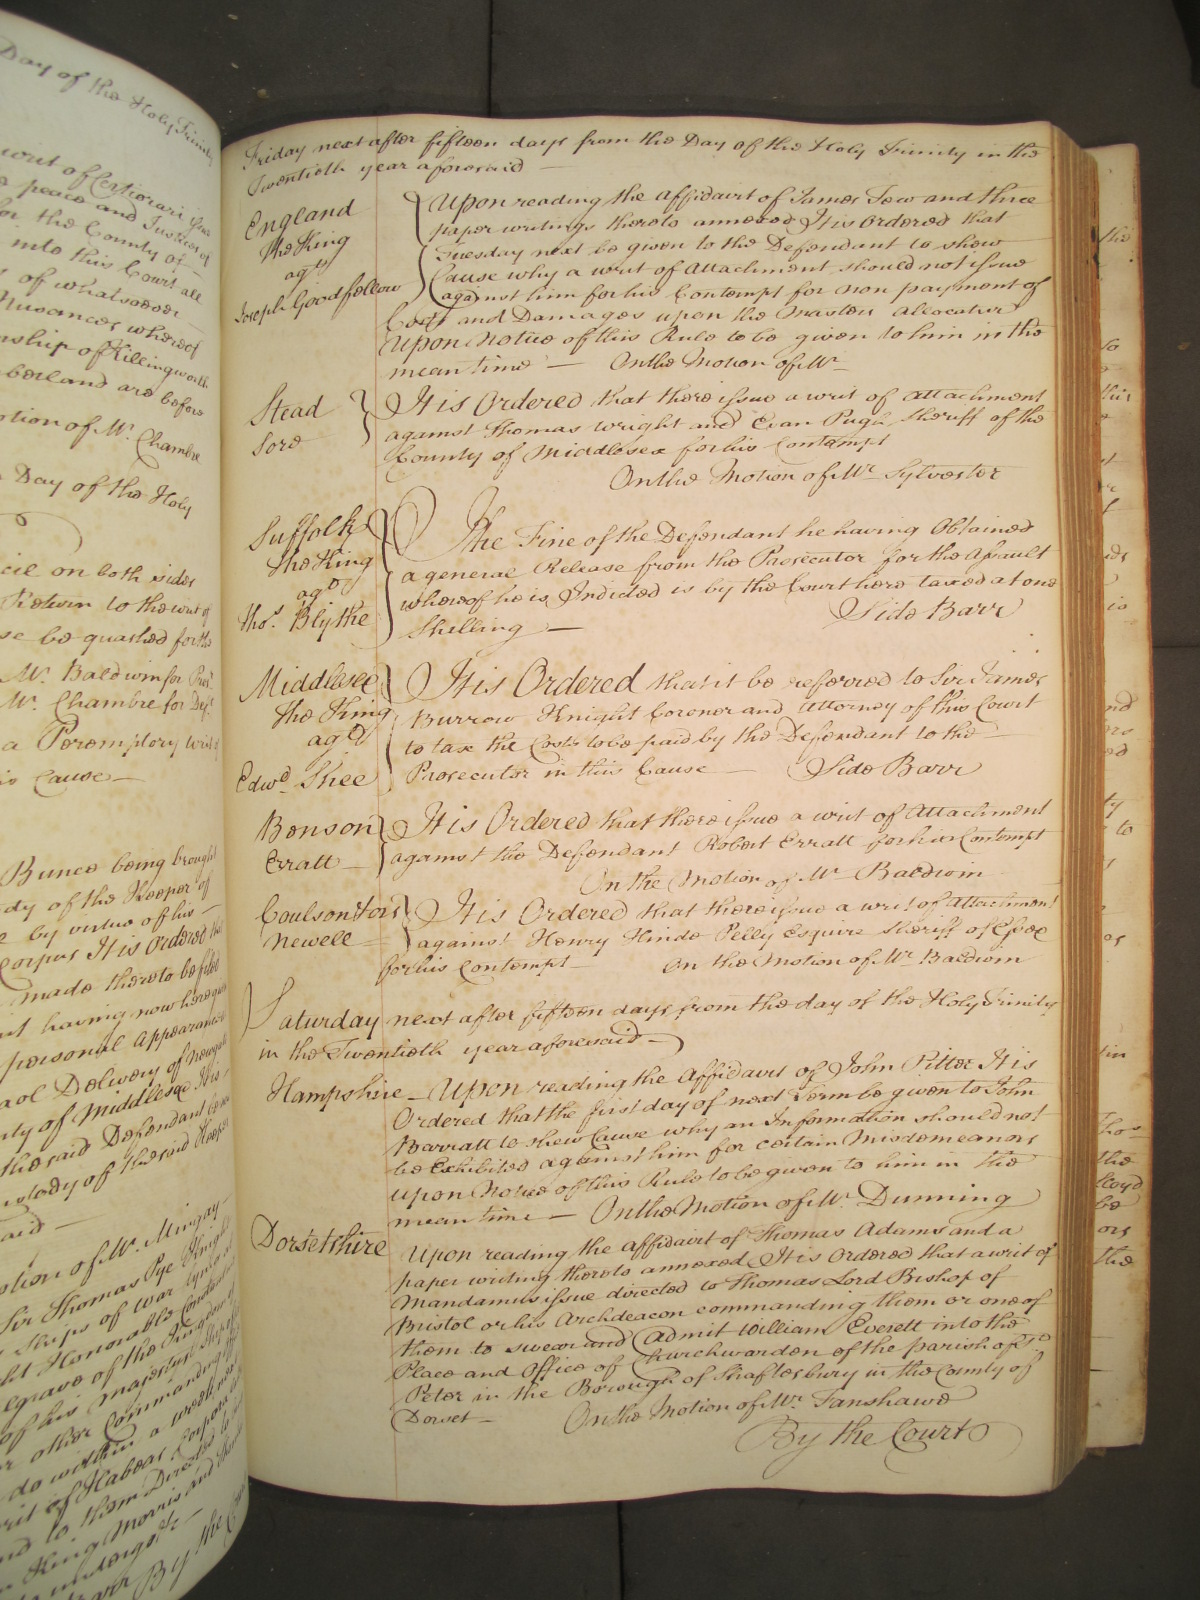 Day of the Holy Trinity
writ of Certiorari issue
peace and Justices of
for the County of
into this Court all
of whatsoever
Nusances whereof
nship of Killingworth
berland are before
otion of Mr. Chambre
Day of the Holy
cil on both sides
Return to the writ of
se be quashed for the
Mr. Baldwin for Prosr.
Mr. Chambre for Deft.
a Peremptory writ
is Cause
Bunce being brought
dy of the Keeper of
by virtue of his
Corpus It is Ordered that
made thereto be filed
nt having now here given
personal Appearance
aol Delivery of Newgate
nty of Middlesex His
the said Defendant be
ustody of the said Keeper
aid
otion of Mr. Mingay
Sir Thomas Pye Knight
Ships of War
ght Honorable Constantine
lgrave of the Kingdom of
of his Majestys Ship
or other Commanding Officer
do within a week next
rit of Habeas Corpus
nd to them Directed to
King Morris and
to undergo &c
Barr By the Court
Friday next after fifteen days from the Day of the Holy Trinity in the
Twentieth year aforesaid
England
The King
agt.
Joseph Goodfellow
Upon reading the Affidavit of James Tew and three
paper writings thereto annexed It is Ordered that
Tuesday next be given to the Defendant to shew
Cause why a writ of Attachment should not issue
against him for his Contempt for non payment of
Costs and Damages upon the Masters Allocatur
Upon Notice of this Rule to be given to him in the
mean time On the Motion of Mr.
Stead
Sore
It is Ordered that there issue a writ of Attachment
against Thomas Wright and Evan Pugh Sheriff of the
County of Middlesex for his Contempt
On the Motion of Mr. Sylvester
Suffolk
The King
agt.
Thos. Blythe
The Fine of the Defendant he having Obtained
a general Release from the Prosecutor for the Assault
whereof he is Indicted is by the Court here taxed at one
Shilling Side Barr
Middlesex
The King
agt.
Edwd. Shee
It is Ordered that it be referred to Sir James
Burrow Knight Coroner and Attorney of this Court
to tax the Costs to be paid by the Defendant to the
Prosecutor in this Cause Side Barr
Benson
Erratt
It is Ordered that there issue a writ of Attachment
against the Defendant Robert Erratt for his Contempt
On the Motion of Mr. Baldwin
Coulson &tors
Newell
It is Ordered that there issue a writ of Attachment
against Henry Hinde Pelly Esquire Sheriff of Essex
for his Contempt On the Motion of Mr. Baldwin
Saturday next after fifteen days from the day of the Holy Trinity
in the Twentieth year aforesaid
Hampshire Upon reading the Affidavit of John Pitter It is
Ordered that the first day of next Term be given to John
Barratt to shew Cause why an Information should not
be Exhibited against him for certain Misdemeanors
upon Notice of this Rule to be given to him in the
mean time On the Motion of Mr. Dunning
Dorsetshire Upon reading the Affidavit of Thomas Adams and a
paper writing thereto annexed It is Ordered that a writ of
Mandamus issue directed to Thomas Lord Bishop of
Bristol or his Archdeacon commanding them or one of
them to swear and Admit William Everett into the
Place and Office of Churchwarden of the parish of St.
Peter in the Borough of Shaftesbury in the County of
Dorset On the Motion of Mr. Fanshawe
By the Court